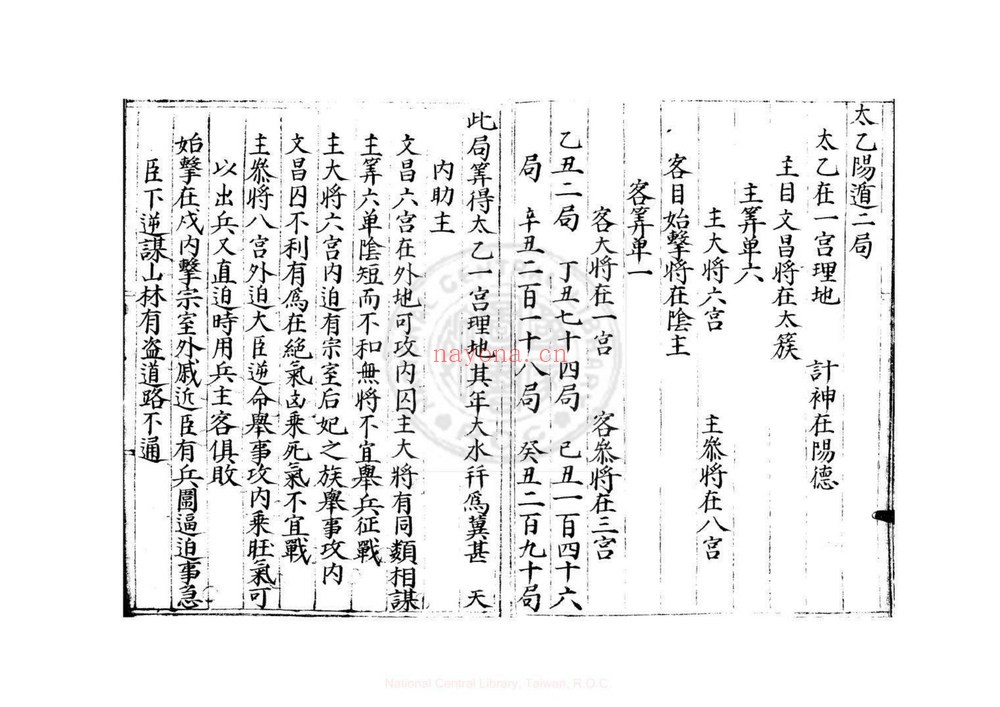 太乙陽遁二局
太乙在一宮理地　計神在陽德
主目文昌將在太簇
主筭单六
主大將六宮　主叅將在八宮
客目始擊將在陰主
客筭单一
客大將在一宮　客叅將在三宮
乙丑二局　丁丑七十四局　己丑一百四十六
局　辛丑二百一十八局　癸丑二百九十局
此局筭得太乙一宮理地其年大水幷為冀甚　天
內助主
文昌六宮在外地可攻內囚主大將有同類相謀
主筭六单陰短而不和無將不宜舉兵征戰
主大將六宮內迫有宗室后妃之族舉事攻內
文昌囚不利有為在絕氣凶乘死氣不宜戰
主叅將八宮外迫大臣逆命舉事攻內乘旺氣可
以出兵又直迫時用兵主客俱敗
始擊在戌內擊宗室外戚近臣有兵圖逼迫事急
臣下逆謀山林有盜道路不通
nayona.cn
National Central Library, Taiwan, R.O.C